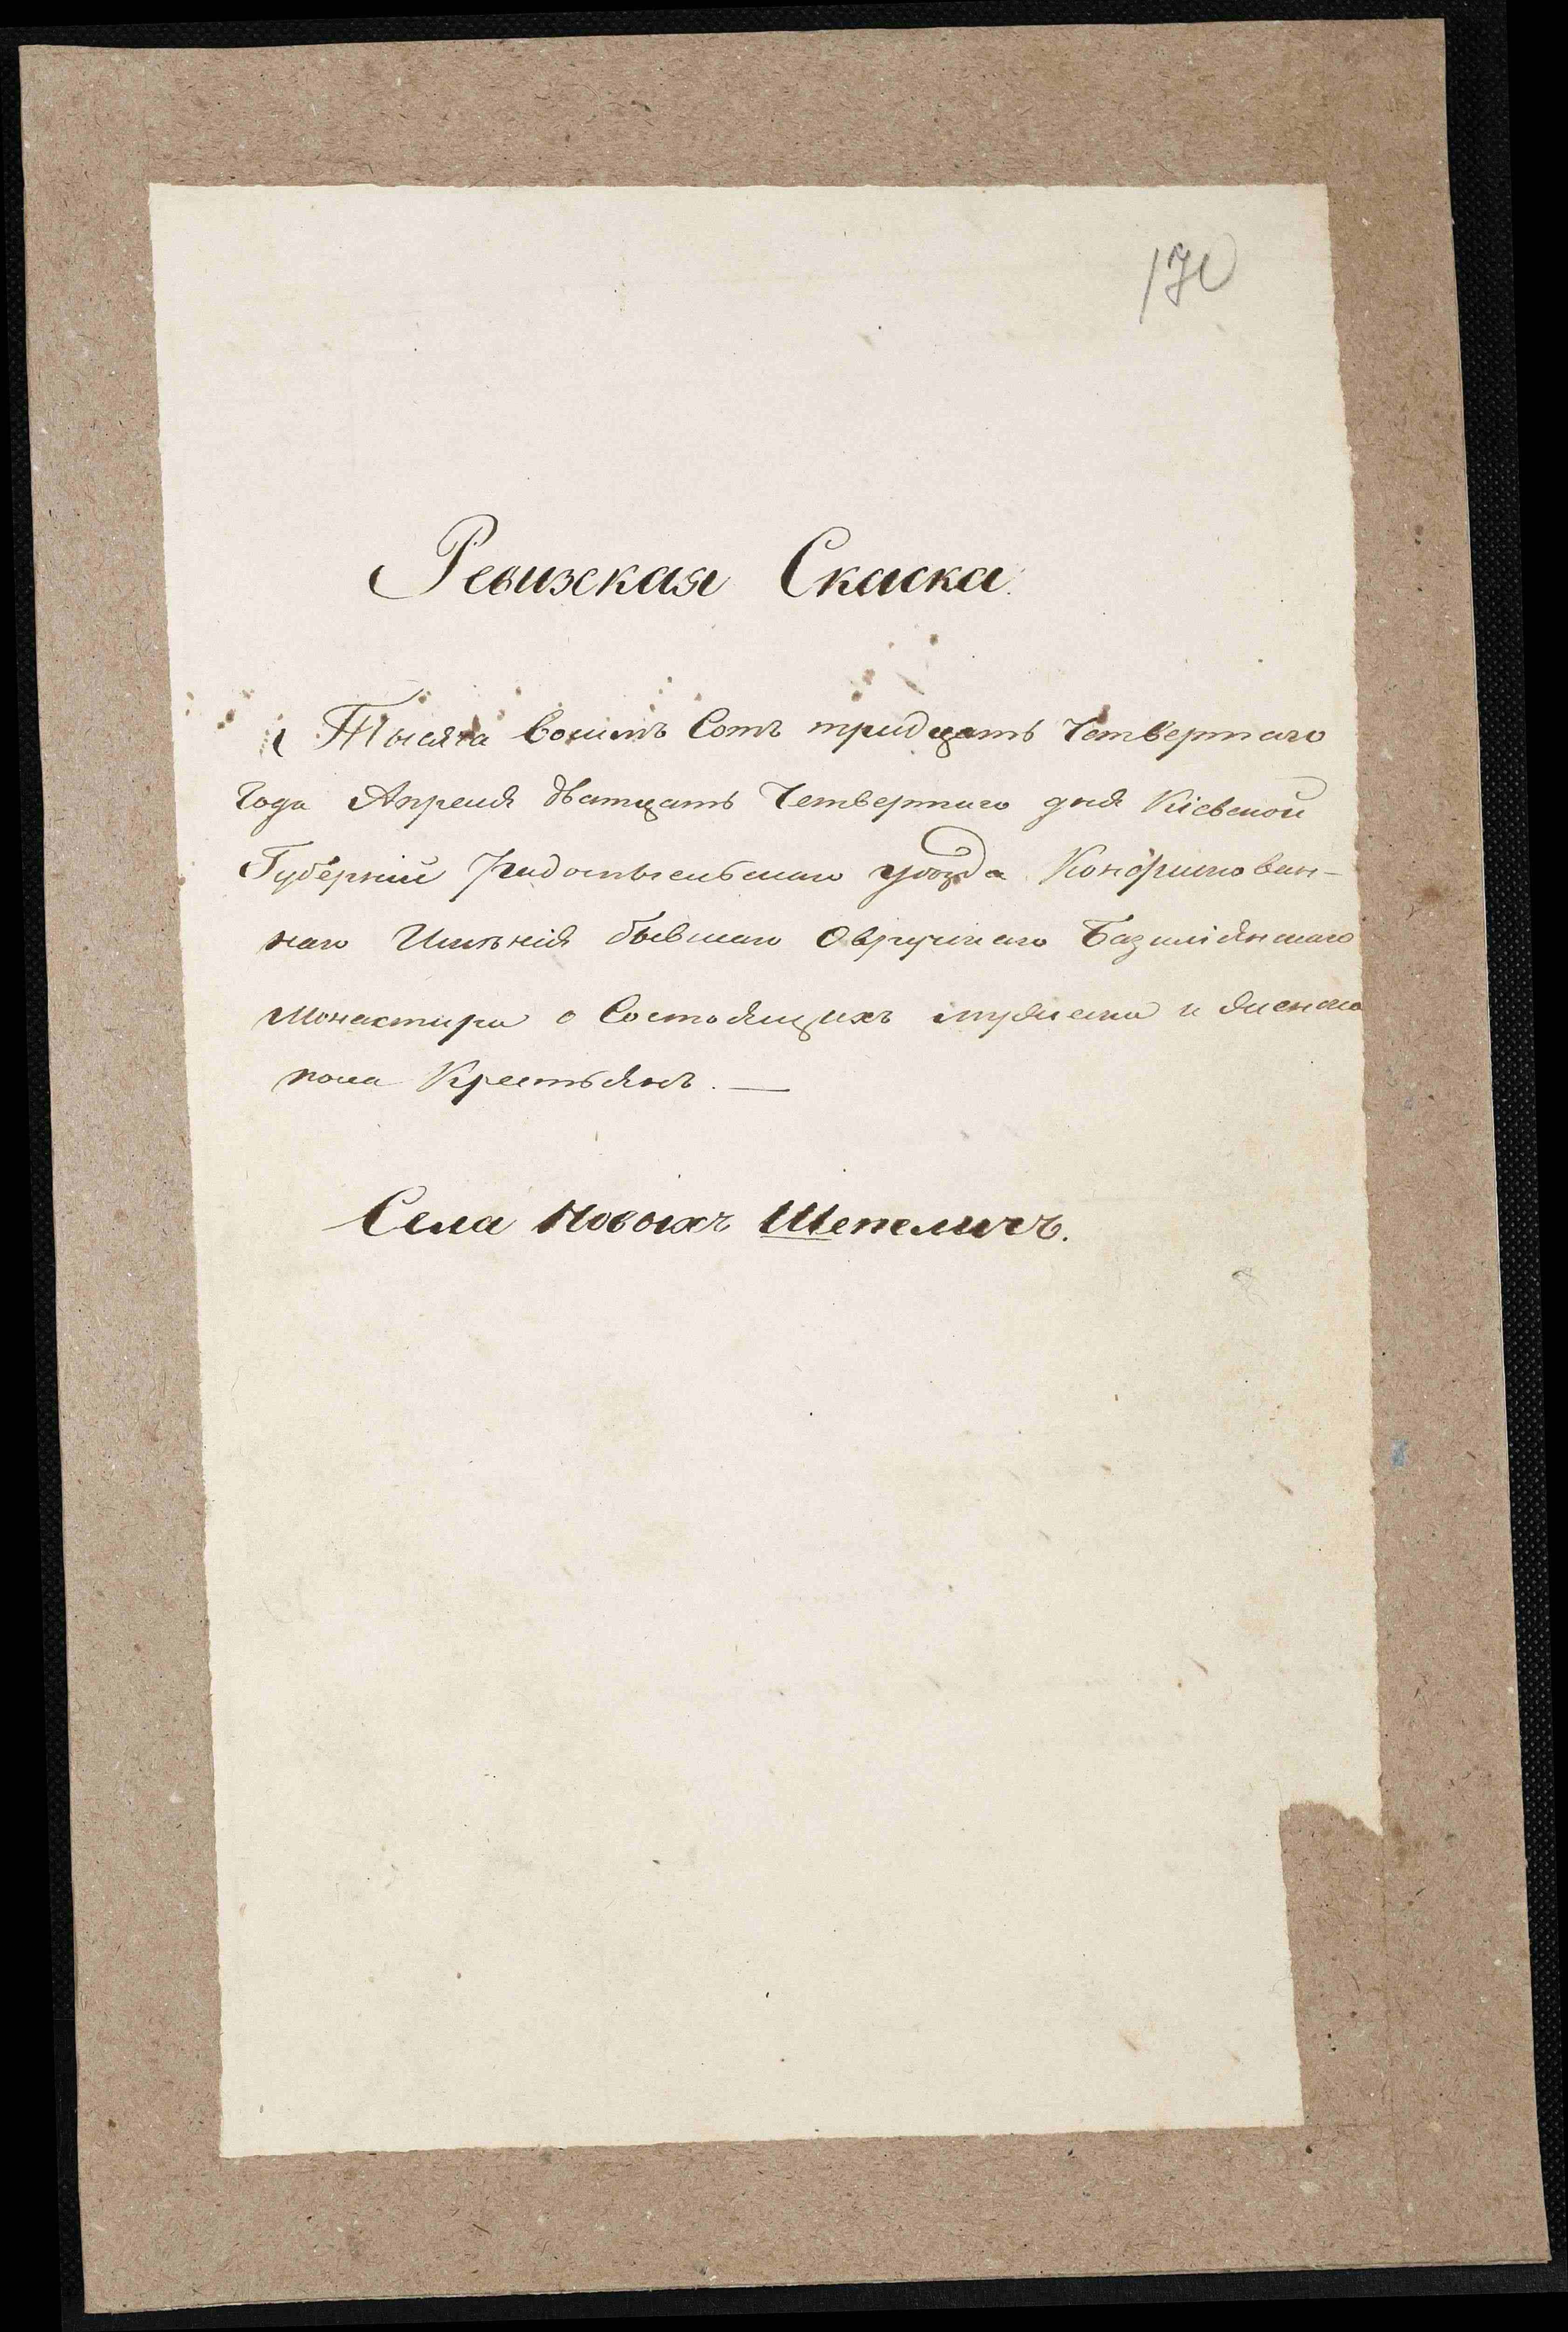 170
Ревизская Скаска
Тысяча восимъ Сотъ тридцать Четвертаго
Года Апреля дватцать Четвертаго дня Кіевской
Губерніи Радомысльскаго уѣзда Конфискован-
наго Имѣнія бывшаго Овручскаго Базиліянскаго
Монастира о Состоящихъ мужеска и женска
пола Крестьянъ. —
Села Новыхъ Шепеличъ.